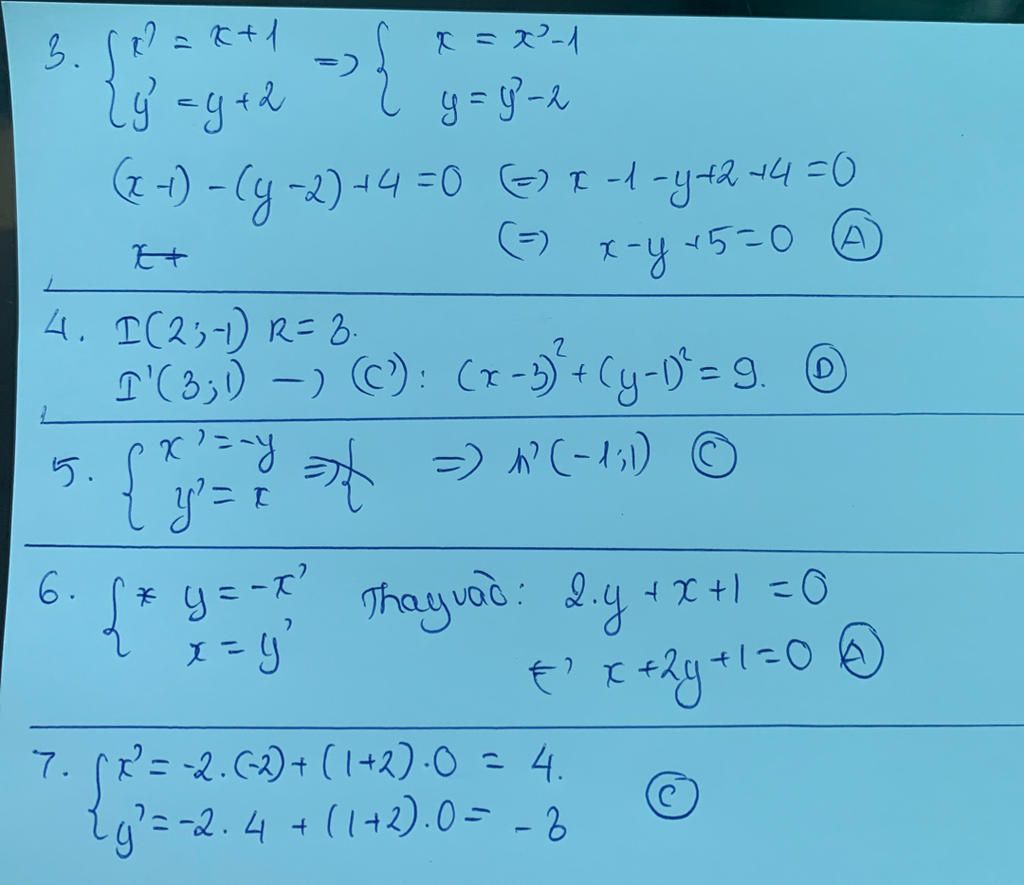 3. { x' = x+1 => { x = x'-1
y' = y+2 y = y'-2
(x-1) - (y-2)+4=0 (=) x-1-y+2+4=0
x+ (=) x-y+5=0 (A)
4. I(2;-1) R=3.
I'(3;1) -> (C'): (x-3)²+(y-1)²=9. (D)
5. { x'=-y => { => (-1;1) (C)
y'= x
6. { * y=-x' Thay vào: 2.y + x+1 =0
x = y' x+2y+1=0 (A)
7. { x'=-2.(-2)+(1+2).0 = 4.
y'=-2.4 +(1+2).0= -8 (C)